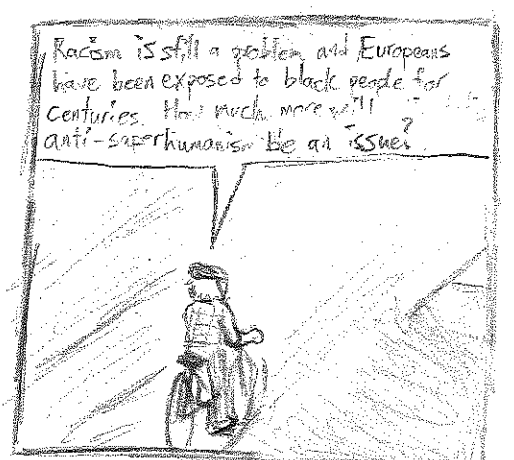 Racism is still a problem and Europeans
have been exposed to black people for
centuries. How much more will
anti-superhumanism be an issue?